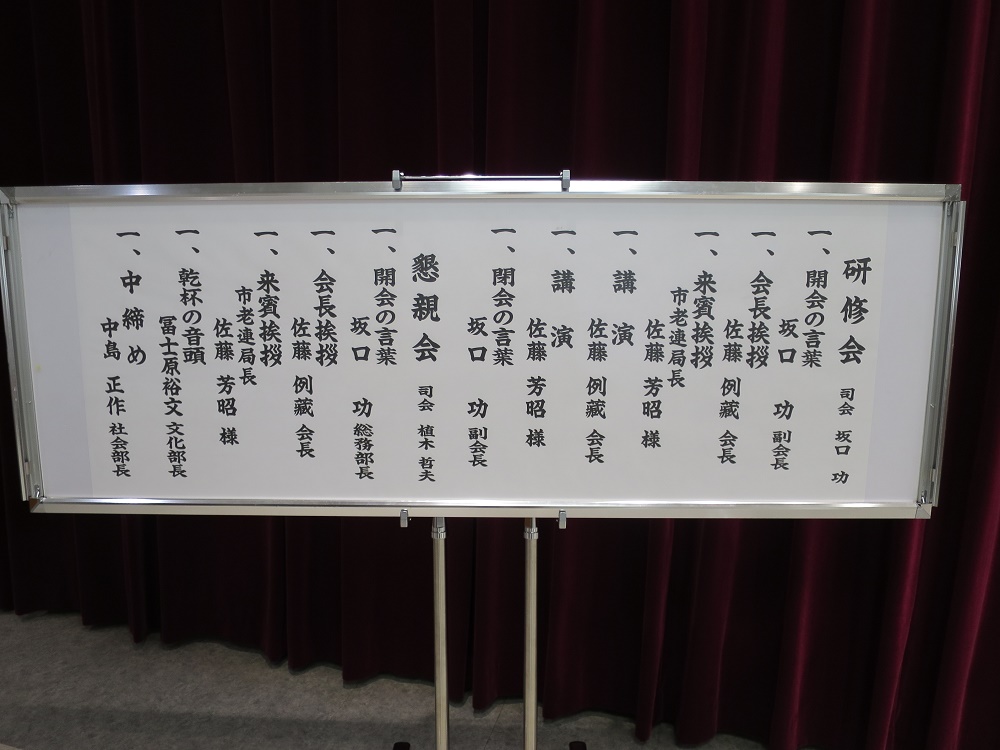 研修会 司会 坂口 功
一、開会の言葉
坂口 功 副会長
一、会長挨拶
佐藤 例藏 会長
一、来賓挨拶
市老連局長
佐藤 芳昭 様
一、講 演
佐藤 例藏 会長
一、講 演
佐藤 芳昭 様
一、閉会の言葉
坂口 功 副会長
懇親会 司会 植木 哲夫
一、開会の言葉
坂口 功 総務部長
一、会長挨拶
佐藤 例藏 会長
一、来賓挨拶
市老連局長
佐藤 芳昭 様
一、乾杯の音頭
冨士原裕文 文化部長
一、中締め
中島 正作 社会部長